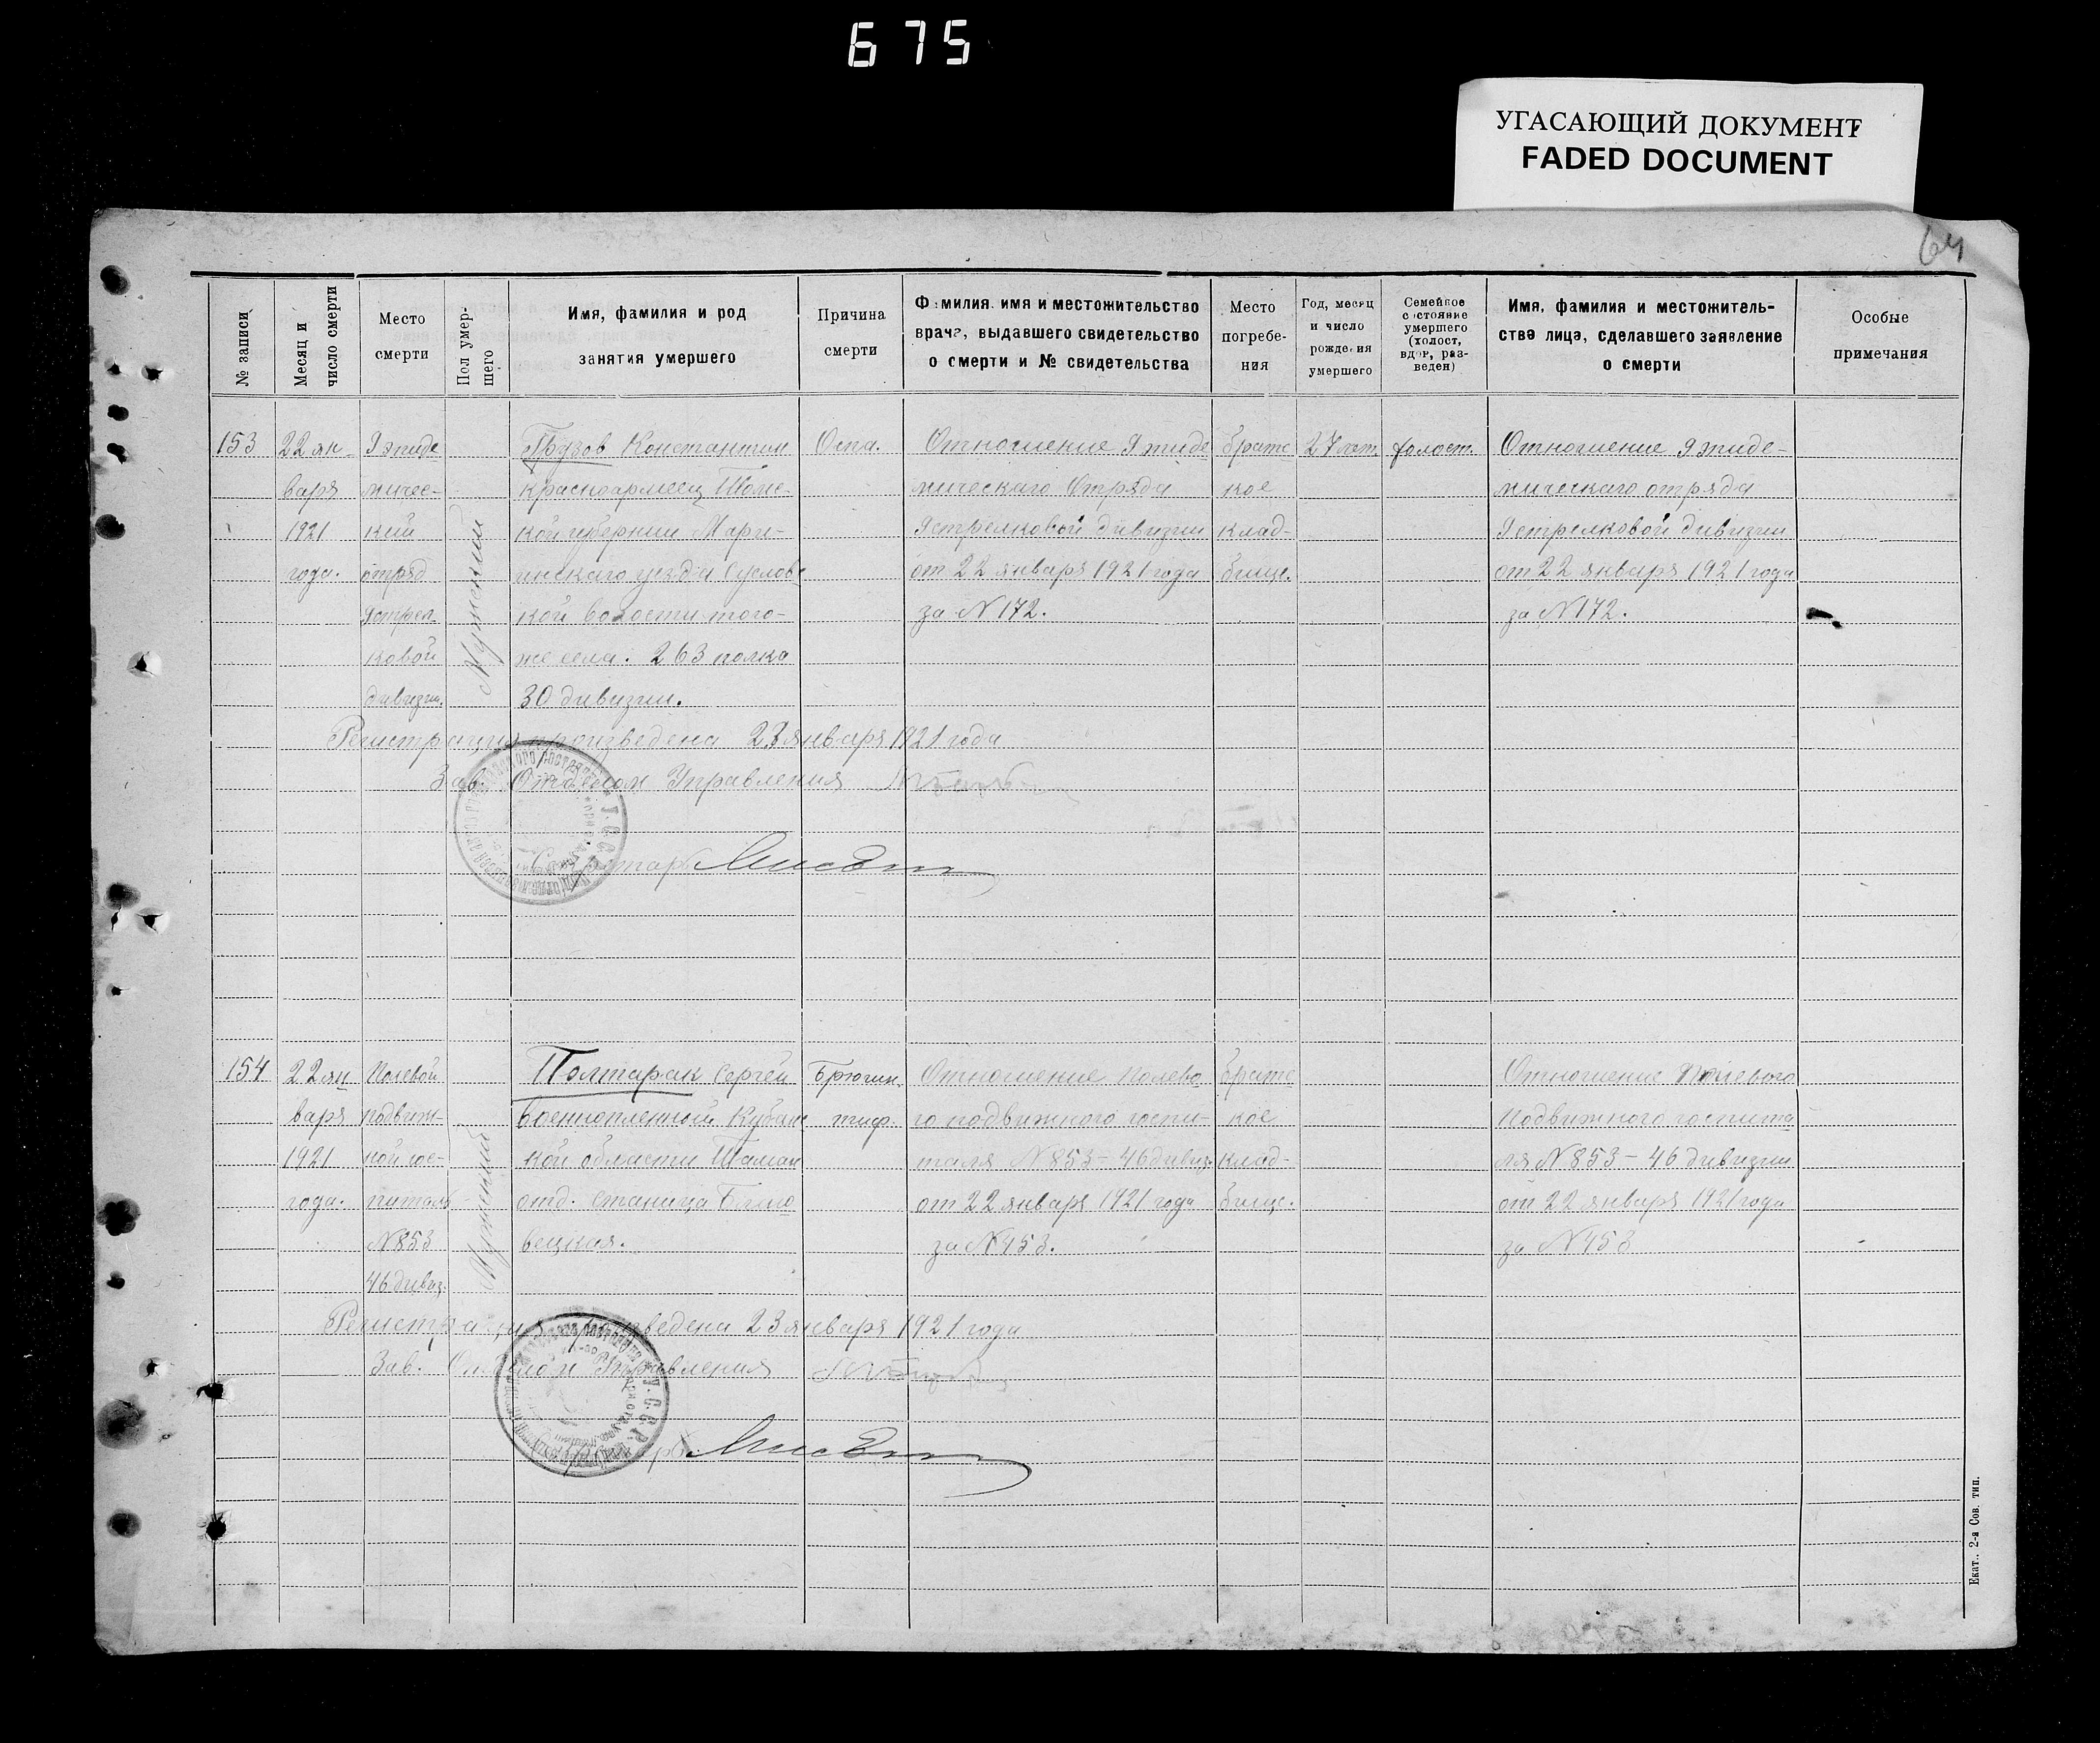 675
УГАСАЮЩИЙ ДОКУМЕНТ
FADED DOCUMENT
64
№ записи
Месяц и
число смерти
Место
смерти
Пол умер-
шего
Имя, фамилия и род
занятия умершего
Причина
смерти
Фамилия, имя и местожительство
врача, выдавшего свидетельство
о смерти и № свидетельства
Место
погребе-
ния
Год, месяц
и число
рождения
умершего
Семейное
состояние
умершего
(холост,
вдов, раз-
веден)
Имя, фамилия и местожитель-
ства лица, сделавшего заявление
о смерти
Особые
примечания
153
22 ян-
варя
1921
года.
9 эпиде
мичес-
кий
отряд
9 стрел
ковой
дивизии.
Мужской
Константин
красноармеец Томс-
кой губернии Мари-
инскаго уезда Суслов
кой волости того-
же села. 263 полка
30 дивизии.
Оспа.
Отношение 9 эпиде
мическаго Отряда
9 стрелковой дивизии
от 22 января 1921 года
за N 172.
братс
кое
клад-
бище.
27 лет
холост.
Отношение 9 эпиде-
мическаго отряда
9 стрелковой дивизии
от 22 января 1921 года
за N 172.
Регистрация произведена 23 января 1921 года
Зав. Отделом Управления
Секретарь
154
22 ян
варя
1921
года.
Полевой
подвиж-
ной гос-
питаль
N 853
46 дивиз.
Мужской
Полтарак Сергей
военнопленный Кубанс
кой области Таман
отд. станица
вецкая.
Брюшн.
тиф.
Отношение Полево
го подвижного госпи-
таля N 853 - 46 дивиз.
от 22 января 1921 года
за N 453.
братс
кое
клад-
бище.
Отношение Полевого
Подвижного госпита
ля N 853 - 46 дивизии
от 22 января 1921 года
за N 453
Регистрация произведена 23 января 1921 года
Зав. Отделом Управления
Секретарь
У.С.С.Р.
Екат., 2-я Сов. тип.